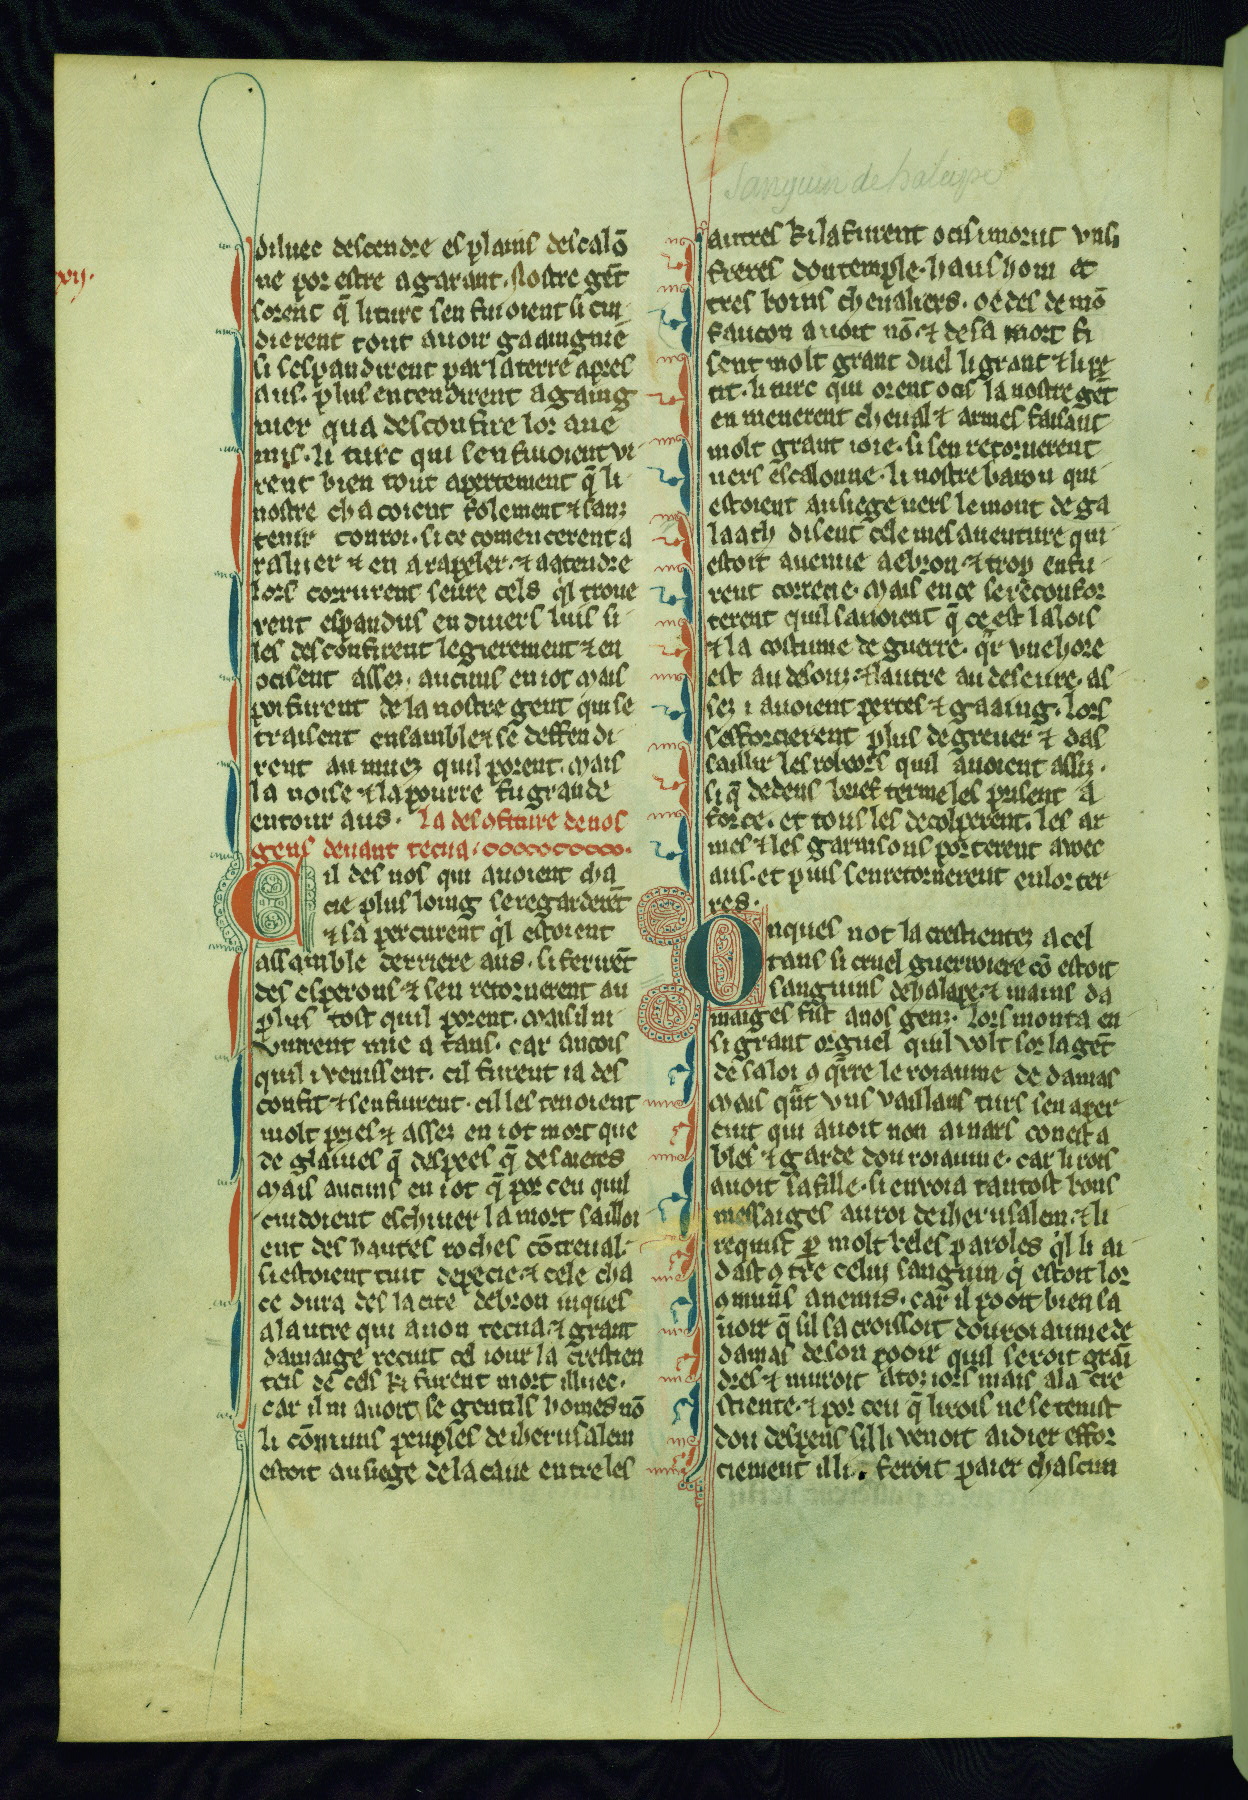 Sanguin de halape
xxij.
diluec descendre es plains descalō
ne por estre a garant. Nostre gēt
sorent q̄ li turc sen fuioient si cui
dierent tout auoir gaaingnie
si sespandirent par la terre apres
aus. plus entendirent a gaaing
nier qua desconfire lor ane
mis. li turc qui sen fuioient vi
rent bien tout apertement q̄ li
nostre chacoient folement ⁊ sanz
tenir conroi. si comencerent a
raluer ⁊ en a rapeler. ⁊ a atendre
lors corrurent seure cels q̄l troue
rent espandus en diuers luis si
les desconfirent legierement ⁊ en
ocisent assez. aucuns en iot mais
poi furent de la nostre gent qui se
traisent ensamble ⁊ se deffendi
rent au miuez quil porent. mais
la noise ⁊ la pourre fu grande
entour aus. La descōfiture de nos
gens deuant tecua.
Cil des nos qui auoient cha
cie plus loing se regarderēt
⁊ sa percurent q̄l estoient
assamble derriere aus. si ferirēt
des esperons ⁊ sen retornerent au
plus tost quil porent. mais il ni
vinrent mie a tans. car ancois
quil i venissent. cil furent ia des
confit ⁊ senfuirent. cil les tenoient
molt pries ⁊ assez en iot mort que
de glaiues q̄ despees q̄ de saietes
mais aucuns en iot q̄ por ceu quil
cuidoient eschiuer la mort sailloi
ent des hautes roches cōtreual.
si estoient tuit depecie ⁊ cele cha
ce dura des la cite debron iuques
a lautre qui a non tecua. ⁊ grant
damaige recuit cel iour la crestien
teis de cels ki furent mort illuec.
car il ni auoit se gentils homes nō
li cōmuns peuples de iherusalem
estoit au siege de la caue entre les
autres ki la furent ocis i morut vns
freres dou temple. haus hom et
tres boins cheualiers. oedes de mō
faucon auoit nō. ⁊ de sa mort fi
sent molt grant duel li grant ⁊ li pe
tit. li turc qui orent ocis la nostre gēt
en menerent cheual ⁊ armes faisant
molt grant ioie. si sen retornerent
uers escalonne. li nostre baron qui
estoient au siege uers le mont de ga
laath disent cele mesauenture qui
estoit auenue a ebron. ⁊ trop en fu
rent correcie. mais en ce se reconfor
terent quil sauoient q̄ ce est la lois
⁊ la costume de guerre. q̄r vne hore
est au desouz ⁊ lautre au deseure. as
sez i auoient pertes ⁊ gaaing. lors
sesforcierent plus de greuer ⁊ das
saillir les robeors quil auoient assiz.
si q̄ dedens brief terme les prisent a
force. et tous les decolperent. les ar
mes ⁊ les garnisons porterent auec
aus. et puis sen retornerent en lor ter
res.
Onques not la crestientez a cel
tans si cruel guerroiere cō estoit
sanguins de halape. ⁊ mains da
maiges fist a nos genz. lors monta en
si grant orguel quil volt sor la gēt
de sa loi ꝯ q̄rre le roiaume de damas
mais q̄nt vns vaillans turs sen aper
cuit qui auoit non ainars conesta
bles ⁊ garde dou roiaume. car li rois
auoit sa fille. si enuoia tantost bons
messaiges au roi de iherusalem. ⁊ li
requist p̄ molt beles paroles q̄l li ai
dast ꝯtre celui sanguin q̄ estoit lor
ꝯmuns anemis. car il pooit bien sa
uoir q̄ sil sacroissoit dou roiaume de
damas de son pooir quil seroit grāi
dres ⁊ nuiroit a toz iors mais a la cre
stiente. ⁊ por ceu q̄ li rois ne se tenist
dou despens sil li venoit aidier effor
ciement il li feroit paier chascun